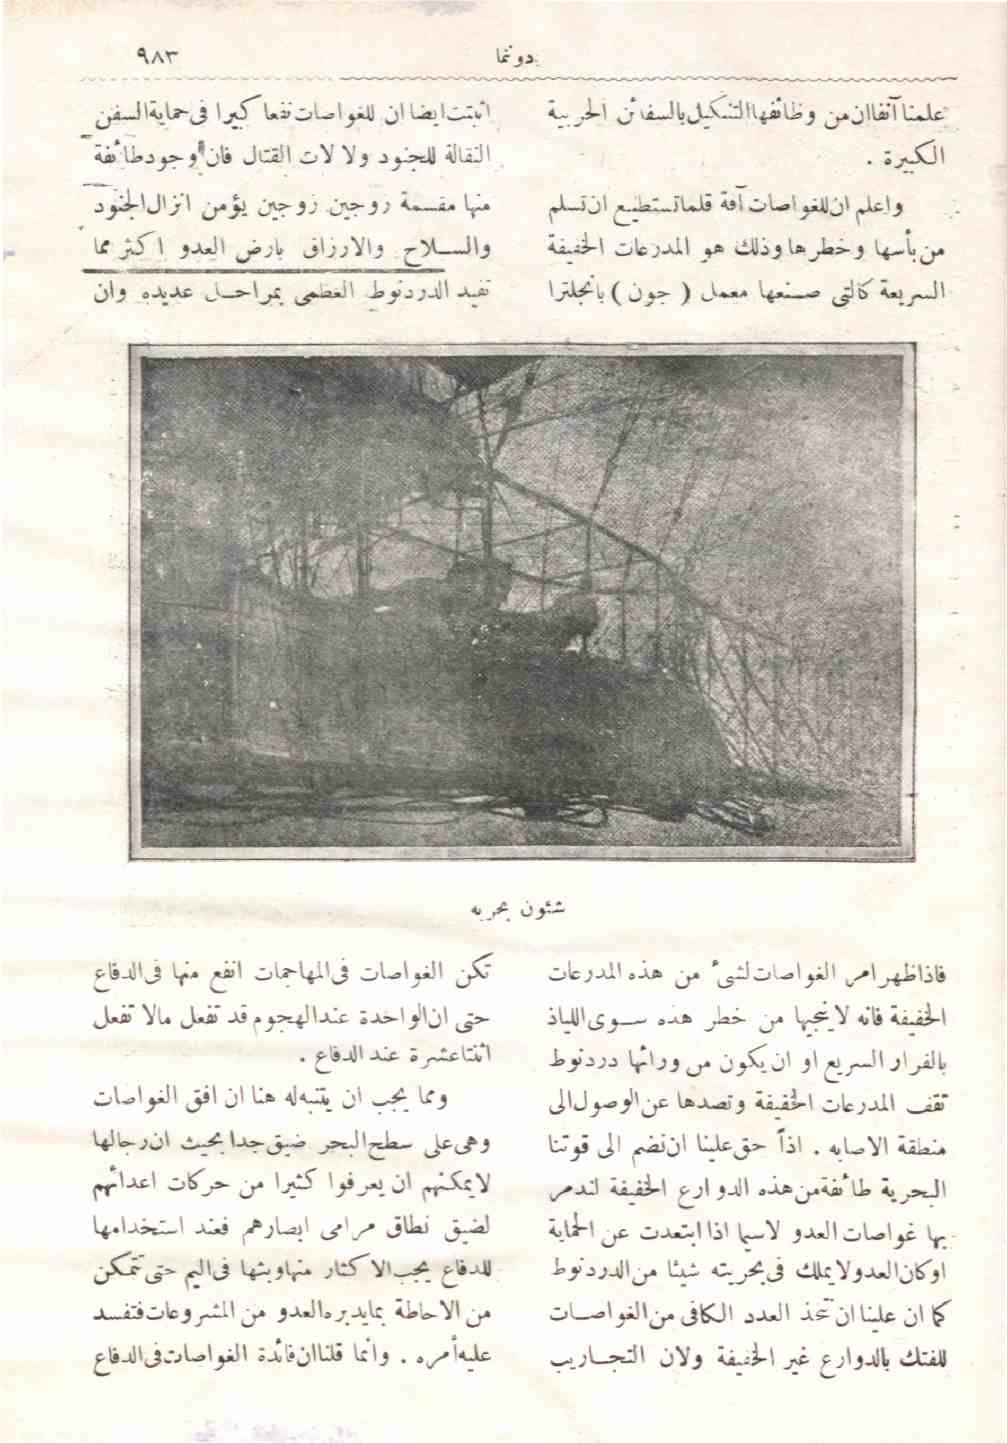 دونما
٩٨٣
علمنا آنفا ان من وظائفها التشكيل بالسفائن الحربية
الكبيرة .
واعلم ان للغواصات آفة قلما تستطيع ان تسلم
من بأسها وخطرها وذلك هو المدرعات الخفيفة
السريعة كالتى صنعها معمل ( جون ) بانجلترا
اثبتت ايضا ان للغواصات نفعا كبيرا فى حماية السفن
النقالة للجنود ولالات القتال فان وجود طائفة
منها مقسمة زوجين زوجين يؤمن انزال الجنود
والسلاح والارزاق بارض العدو اكثر مما
تفيد الدردنوط العظمى بمراحل عديده وان
شئون بحريه
فاذا ظهر امر الغواصات لشىء من هذه المدرعات
الخفيفة فانه لا ينجيها من خطر هذه سوى اللياذ
بالفرار السريع او ان يكون من ورائها دردنوط
تقف المدرعات الخفيفة وتصدها عن الوصول الى
منطقة الاصابه . اذاً حق علينا ان نضم الى قوتنا
البحرية طائفة من هذه الدوارع الخفيفة لندمر
بها غواصات العدو لاسيما اذا ابتعدت عن الحماية
او كان العدو لا يملك فى بحريته شيئا من الدردنوط
كما ان علينا ان نتخذ العدد الكافى من الغواصات
للفتك بالدوارع غير الخفيفة ولان التجاريب
تكن الغواصات فى المهاجمات انفع منها فى الدفاع
حتى ان الواحدة عند الهجوم قد تفعل مالا تفعل
اثنتا عشرة عند الدفاع .
ومما يجب ان يتنبه له هنا ان افق الغواصات
وهى على سطح البحر ضيق جدا بحيث ان رجالها
لا يمكنهم ان يعرفوا كثيرا من حركات اعدائهم
لضيق نطاق مرامى ابصارهم فعند استخدامها
للدفاع يجب الاكثار منها وبثها فى اليم حتى تتمكن
من الاحاطة بما يدبره العدو من المشروعات فتفسد
عليه أمره . وانما قلنا ان فائدة الغواصات فى الدفاع